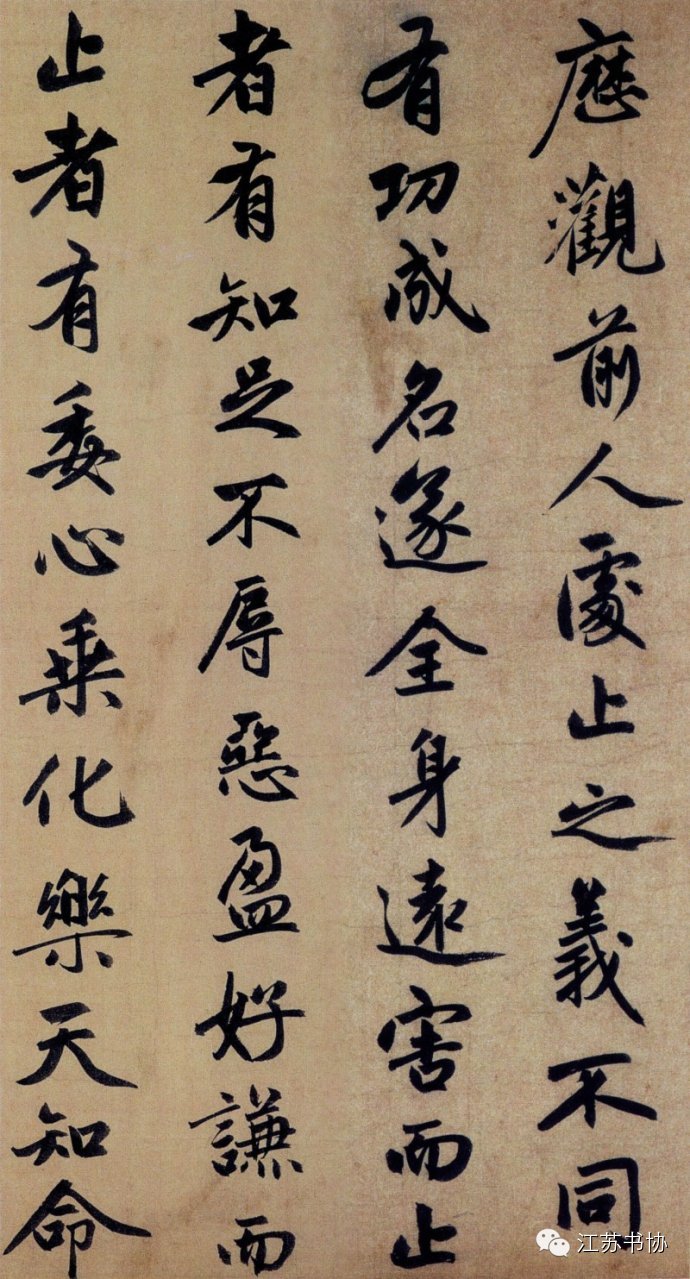 歷觀前人處止之義不同
有功成名遂全身遠害而止
者有知足不辱惡盈好謙而
止者有委心乘化樂天知命
江苏书协